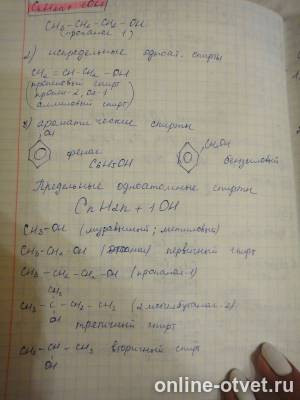 CnH2n+1OH
CH3-CH2-CH2-OH
(пропанол 1)
2) непредельные одноат. спирты
CH2=CH-CH2-OH
пропен-2, ол-1
аллиловый спирт
3) ароматические спирты
OH
CH2OH
фенол
C6H5OH
бензиловый
Предельные одноатомные спирты
CnH2n+1OH
CH3-OH (муравьиный; метиловый)
CH3-CH2-OH (этанол) первичный спирт
CH3-CH2-CH2-OH (пропанол-1)
CH3
CH3-C-CH2-CH3 (2 метилбутанол-2)
OH
третичный спирт
CH3-CH-CH3 вторичный спирт
OH
online-otvet.ru